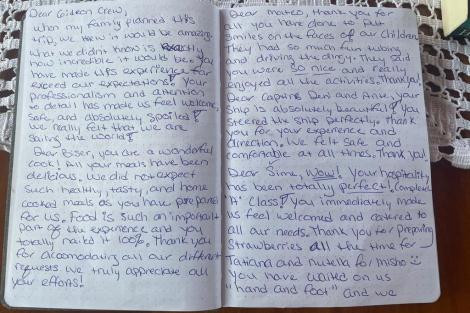 Dear Gideon Crew,
When my family planned this
trip, we knew it would be amazing.
What we didn't know is exactly
how incredible it would be. You
have made this experience far
exceed our expectations! Your
professionalism and attention
to detail has made us feel welcome,
safe, and absolutely spoiled!
We really felt that we are
sailing the world!
Dear Biser, you are a wonderful
cook! All your meals have been
delicious. We did not expect
such healthy, tasty, and home
cooked meals as you have prepared
for us. Food is such an important
part of the experience and you
totally nailed it 100%. Thank you
for accomodating all our different
requests we truly appreciate all
your efforts!
Dear Matea, thank you for
all you have done to put
smiles on the faces of our children.
They had so much fun tubing
and driving the dingy. They said
you were so nice and really
enjoyed all the activities. Thank you!
Dear Captains Deni and Ante, your
ship is absolutely beautiful! You
steered the ship perfectly. Thank
you for your experience and
direction. We felt safe and
comfortable at all times. Thank you!
Dear Šime, Wow! Your hospitality
has been totally perfect! Complete
"A" Class! You immediately made
us feel welcomed and catered to
all our needs. Thank you for preparing
strawberries all the time for
Tatiana and nutella for Misho ☺
You have waited on us
"hand and foot" and we